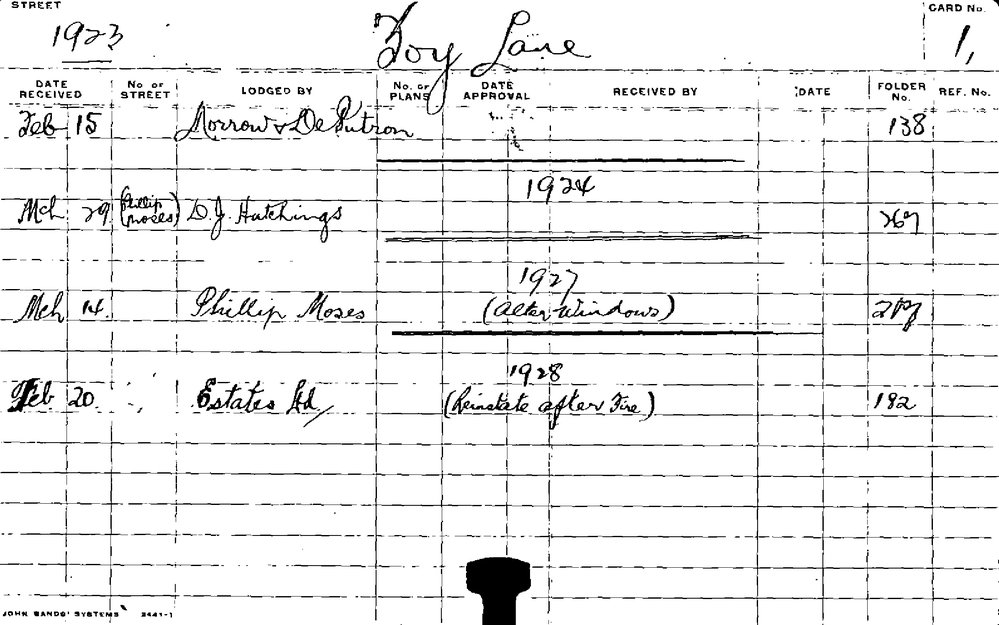 STREET
CARD No.
1923
Foy Lane
1,
DATE RECEIVED
No of STREET
LODGED BY
No. of PLANS
DATE APPROVAL
RECEIVED BY
DATE
FOLDER No.
REF. No.
Feb 15 Morrow & De Putron 138
1924
Mch 29 (Phillip Moses) D. J. Hutchings 267
1927
Mch 14. Phillip Moses (Alter Windows)
1928
Feb 20 " Estates Ltd (Reinstate after Fire) 182
JOHN SANDS' SYSTEMS 3441-1